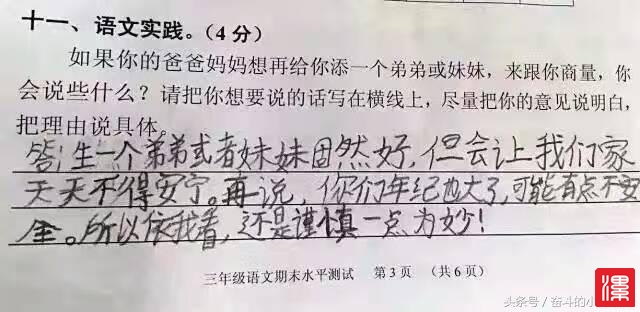 十一、语文实践。(4分)
如果你的爸爸妈妈想再给你添一个弟弟或妹妹，来跟你商量，你
会说些什么？请把你想要说的话写在横线上，尽量把你的意见说明白，
把理由说具体。
答：生一个弟弟或者妹妹固然好，但会让我们家
天天不得安宁。再说，你们年纪也大了，可能有点不安
全。所以依我看，还是谨慎一点为妙！
三年级语文期末水平测试 第3页 （共6页）
头条号/奋斗的小